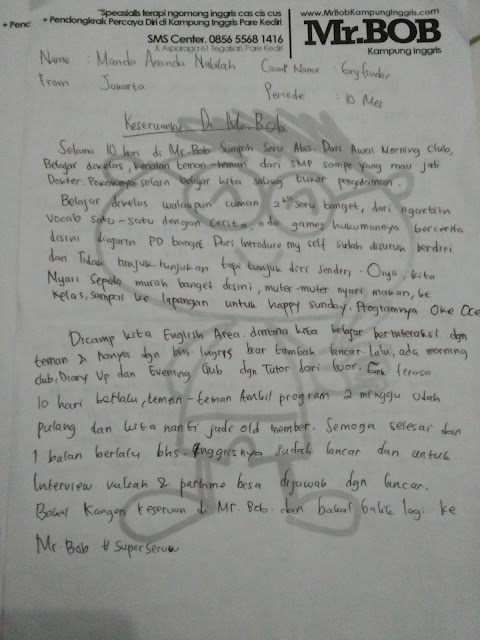 "Speasialis terapi ngomong inggris cas cis cus
+ Penc + Pendongkrak Percaya Diri di Kampung Inggris Pare Kediri
SMS Center. 0856 5568 1416
Jl. Asparaga 61 Tegalsari, Pare Kediri
www.MrBobKampungInggris.com
Mr.BOB
Kampung Inggris
Name : Manda Ananda Nabilah
Camp Name : Gryfindor
From Jakarta
Periode : 10 Mei
Keseruanku Di Mr.Bob
Selama 10 hari di Mr.Bob Sumpah Seru Abis. Dari Awal Morning Club,
Belajar dikelas, kenalan teman-teman dari SMP sampe yang mau jadi
Dokter. Pokoknya selain belajar kita saling tukar pengalaman.
Belajar dikelas walaupun cuman 2 seru banget, dari ngartiin
vocab satu-satu dengan cerita, ada games hukumannya bercerita
disini diajarin PD banget. Dari Introduce my self sudah disuruh berdiri
dan Tidak tunjuk tunjukan tapi tunjuk diri sendiri. Oiya, kita
Nyari Sepeda murah banget disini, muter-muter nyari makan, ke
kelas, sampai ke lapangan untuk happy sunday. Programnya Oke Oce
Dicamp kita English Area. dimana kita belajar berinteraksi dgn
teman & hanya dgn bhs. Inggris biar tambah lancar. lalu, ada morning
club, Diary Up dan Evening Club dgn Tutor dari luar. Gak terasa
10 hari berlalu, teman-teman Ambil program 2 minggu udah
pulang dan kita nanti jadi old member. Semoga selesai dan
1 bulan berlalu bhs. Inggrisnya sudah lancar dan untuk
Interview kuliah & partime bisa dijawab dgn lancar.
Bakal kangen keseruan di Mr. Bob. dan bakal balik lagi ke
Mr. Bob # Superseruu